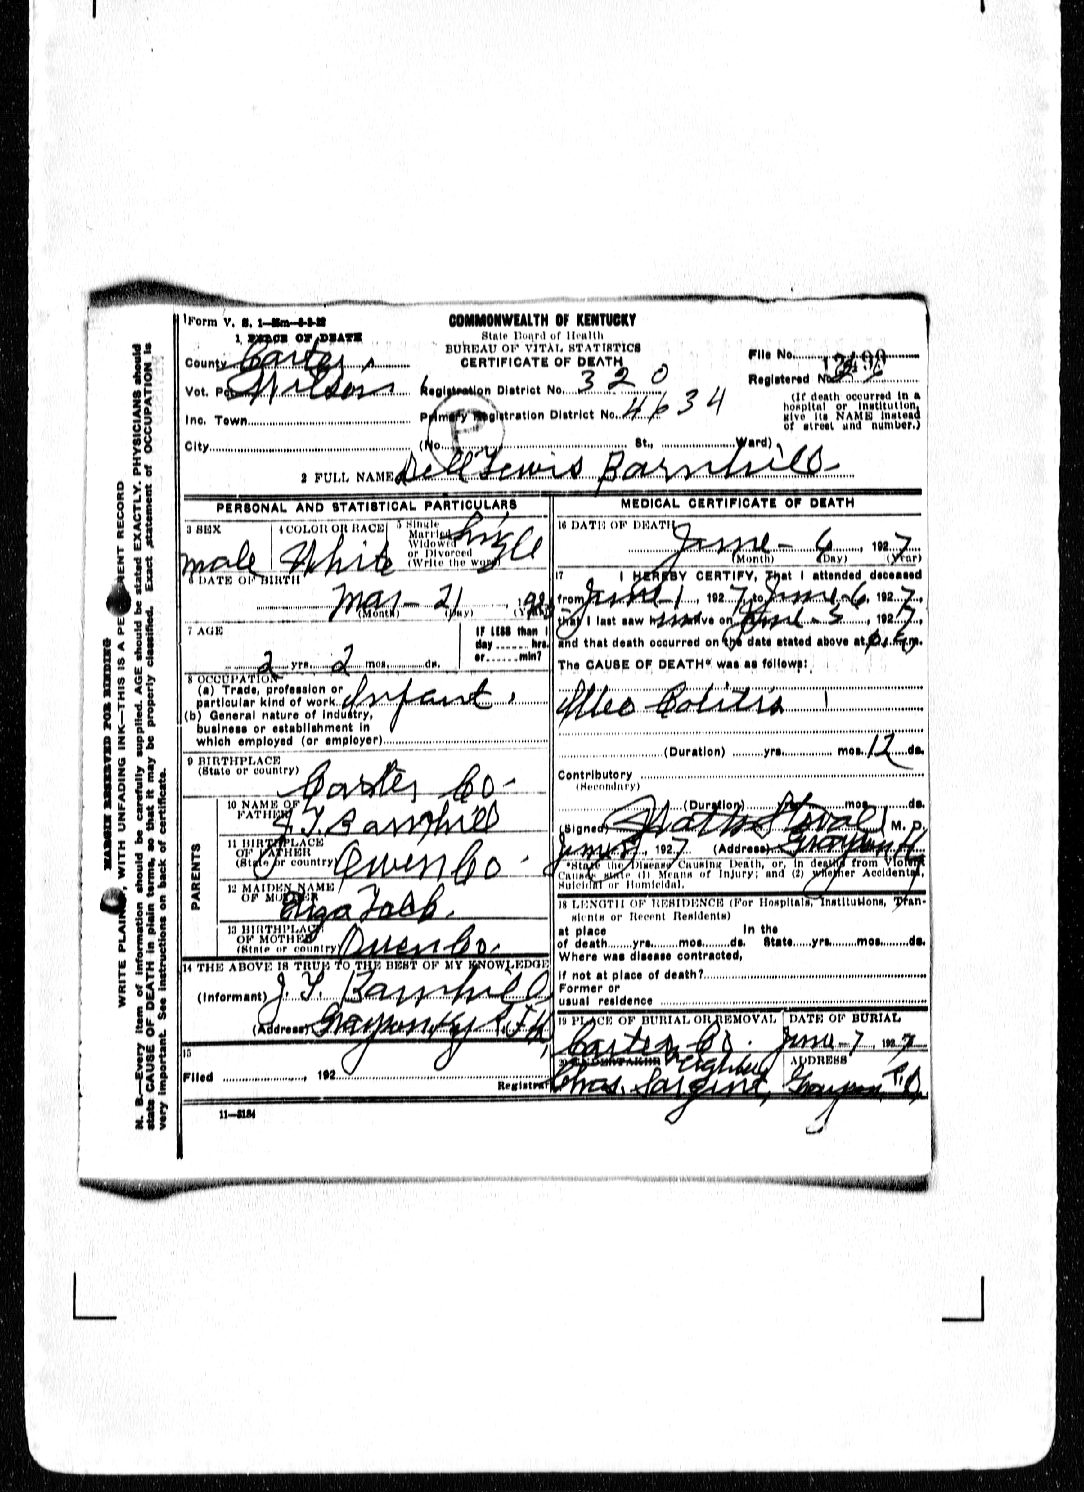 Form V. S. 1
COMMONWEALTH OF KENTUCKY
State Board of Health
BUREAU OF VITAL STATISTICS
CERTIFICATE OF DEATH
1 PLACE OF DEATH
County Carter
Vot. Pct. Wilson
Inc. Town
City
Registration District No. 320
Primary Registration District No. 4634
(No. St., Ward)
File No.
Registered No.
(If death occurred in a
hospital or institution,
give its NAME instead
of street and number.)
2 FULL NAME Dell Lewis Barnhill
PERSONAL AND STATISTICAL PARTICULARS
3 SEX
male
4 COLOR OR RACE
White
5 Single
Married
Widowed
or Divorced
(Write the word)
Single
6 DATE OF BIRTH
Mar - 21
(Month) (Day) (Year)
7 AGE
2 yrs. 2 mos. ds.
IF LESS than 1
day hrs.
or min?
8 OCCUPATION
(a) Trade, profession or
particular kind of work Infant
(b) General nature of industry,
business or establishment in
which employed (or employer)
9 BIRTHPLACE
(State or country)
Carter Co
PARENTS
10 NAME OF
FATHER
J. T. Barnhill
11 BIRTHPLACE
OF FATHER
(State or country)
Owen Co
12 MAIDEN NAME
OF MOTHER
13 BIRTHPLACE
OF MOTHER
(State or country)
Owen Co.
14 THE ABOVE IS TRUE TO THE BEST OF MY KNOWLEDGE
(Informant) J. T. Barnhill
(Address) Grayson Ky
15
Filed , 192
Registrar
11—3184
MEDICAL CERTIFICATE OF DEATH
16 DATE OF DEATH
June - 6, 1927
(Month) (Day) (Year)
17 I HEREBY CERTIFY, That I attended deceased
from June - 1 1927, to June - 6, 1927,
that I last saw him alive on June - 5, 1927,
and that death occurred on the date stated above at m.
The CAUSE OF DEATH* was as follows:
Illeo Colitis
(Duration) yrs. mos. 12 ds.
Contributory
(Secondary)
(Duration) yrs. mos. ds.
(Signed) Stovall M. D.
June 1927 (Address) Grayson Ky
*State the Disease Causing Death, or, in death from Violent
Causes state (1) Means of Injury; and (2) whether Accidental,
Suicidal or Homicidal.
18 LENGTH OF RESIDENCE (For Hospitals, Institutions, Tran-
sients or Recent Residents)
at place In the
of death yrs. mos. ds. State yrs. mos. ds.
Where was disease contracted,
if not at place of death?
Former or
usual residence
19 PLACE OF BURIAL OR REMOVAL
Carter Co.
DATE OF BURIAL
June - 7, 1927
20 UNDERTAKER Neighbor
Chas. Sargent,
ADDRESS
Grayson
MARGIN RESERVED FOR BINDING
WRITE PLAINLY, WITH UNFADING INK—THIS IS A PERMANENT RECORD
N. B.—Every item of information should be carefully supplied. AGE should be stated EXACTLY. PHYSICIANS should
state CAUSE OF DEATH in plain terms, so that it may be properly classified. Exact statement of OCCUPATION is
very important. See instructions on back of certificate.